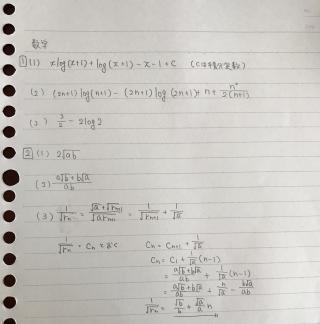 数学
1 (1) xlog(x+1)+log(x+1)-x-1+C (Cは積分定数)
(2) (2n+1)log(n+1)-(2n+1)log(2n+1)+n+n²/2(n+1)
(3) 3/2-2log2
2 (1) 2√ab
(2) a√b+b√a/ab
(3) 1/√rn = √a+√rn-1/√a rn-1 = 1/√rn-1 + 1/√a
1/√rn = Cn とおく Cn = Cn-1 + 1/√a
Cn = C1 + 1/√a (n-1)
= a√b+b√a/ab + 1/√a (n-1)
= a√b+b√a/ab + n/√a - b√a/ab
1/√rn = √b/b + √a/a n